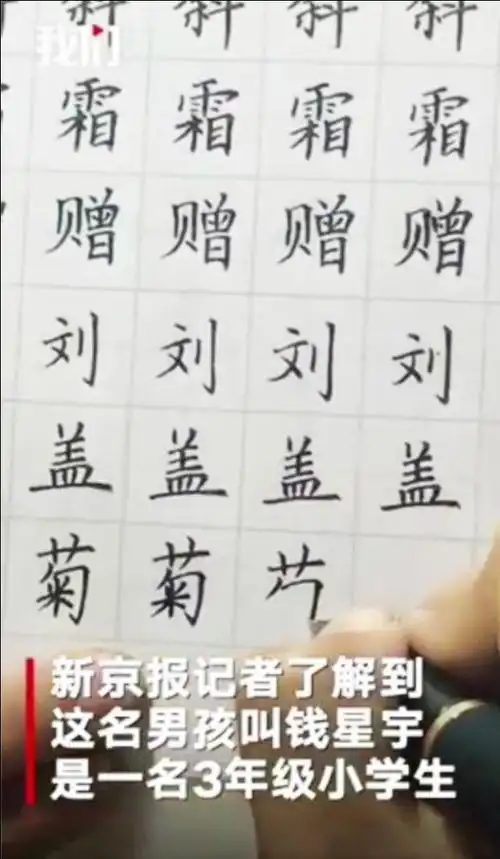 我们
斜 斜 斜 斜
霜 霜 霜 霜
赠 赠 赠 赠
刘 刘 刘 刘
盖 盖 盖 盖
菊 菊
新京报记者了解到
这名男孩叫钱星宇
是一名3年级小学生